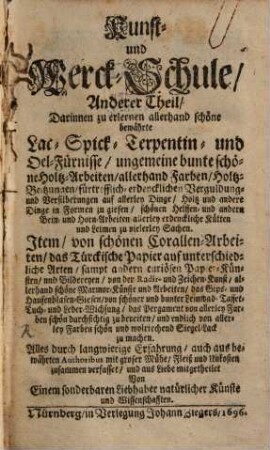 Kunst-
und
Werck-Schule/
Anderer Theil/
Darinnen zu erlernen allerhand schöne
bewährte
Lac- Spick- Terpentin- und
Oel-Fürnisse/ ungemeine bunte schö-
ne Holtz-Arbeiten/ allerhand Farben/ Holtz-
Beitzungen/ fürtrefflich-erdencklichen Verguldung-
und Versilberungen auf allerley Dinge/ Holtz und andere
Dinge in Formen zu giessen/ schönen Helffen- und andern
Bein- und Horn-Arbeiten allerley erdenckliche Kütten
und Leimen zu vielerley Sachen.
Item/ von schönen Corallen-Arbei-
ten/ das Türckische Papier auf unterschied-
liche Arten/ sampt andern curiösen Papier-Kün-
sten/ und Bildereyen/ von der Radir- und Zeichen-Kunst/ al-
lerhand schöne Marmor-Künste und Arbeiten/ das Gyps- und
Hausenblasen-Giesen/ von schöner und bunter Leinwad- Taffet-
Tuch- und Leder-Wichsung/ das Pergament von allerley Far-
ben schön durchsichtig zu bereiten/ und endlich von aller-
ley Farben schön und wolriechend Siegel-Lack
zu machen.
Alles durch langwierige Erfahrung/ auch aus be-
währten Authoribus mit grosser Mühe/ Fleiß und Unkosten
zusammen verfasset/ und aus Liebe mitgetheilet
Von
Einem sonderbaren Liebhaber natürlicher Künste
und Wissenschafften.
Nürnberg/ in Verlegung Johann Ziegers/ 1696.